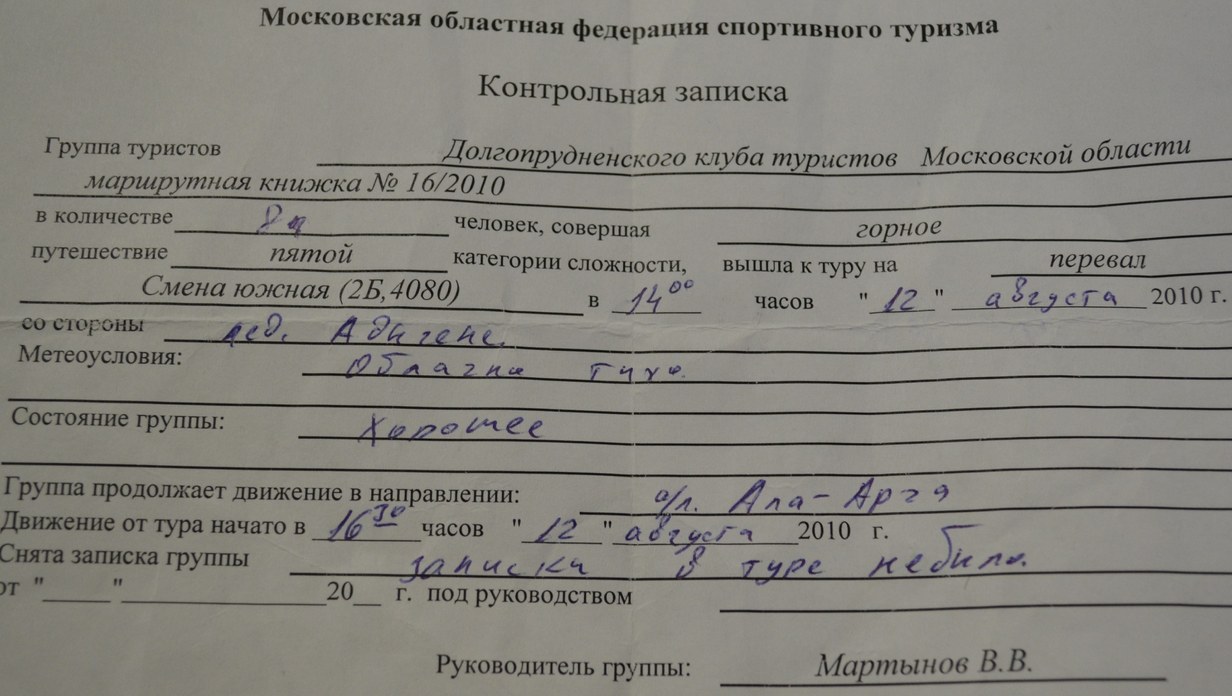 Московская областная федерация спортивного туризма
Контрольная записка
Группа туристов Долгопрудненского клуба туристов Московской области
маршрутная книжка № 16/2010
в количестве человек, совершая горное
путешествие пятой категории сложности, вышла к туру на перевал
Смена южная (2Б,4080) в 14 00 часов "12" августа 2010 г.
со стороны лед. Адыгене.
Метеоусловия: Облачно тихо.
Состояние группы: Хорошее
Группа продолжает движение в направлении: а/л. Ала-Арча
Движение от тура начато в 16 30 часов "12" августа 2010 г.
Снята записка группы записки в туре небыло.
от "_____"_______________20__ г. под руководством
Руководитель группы: Мартынов В.В.